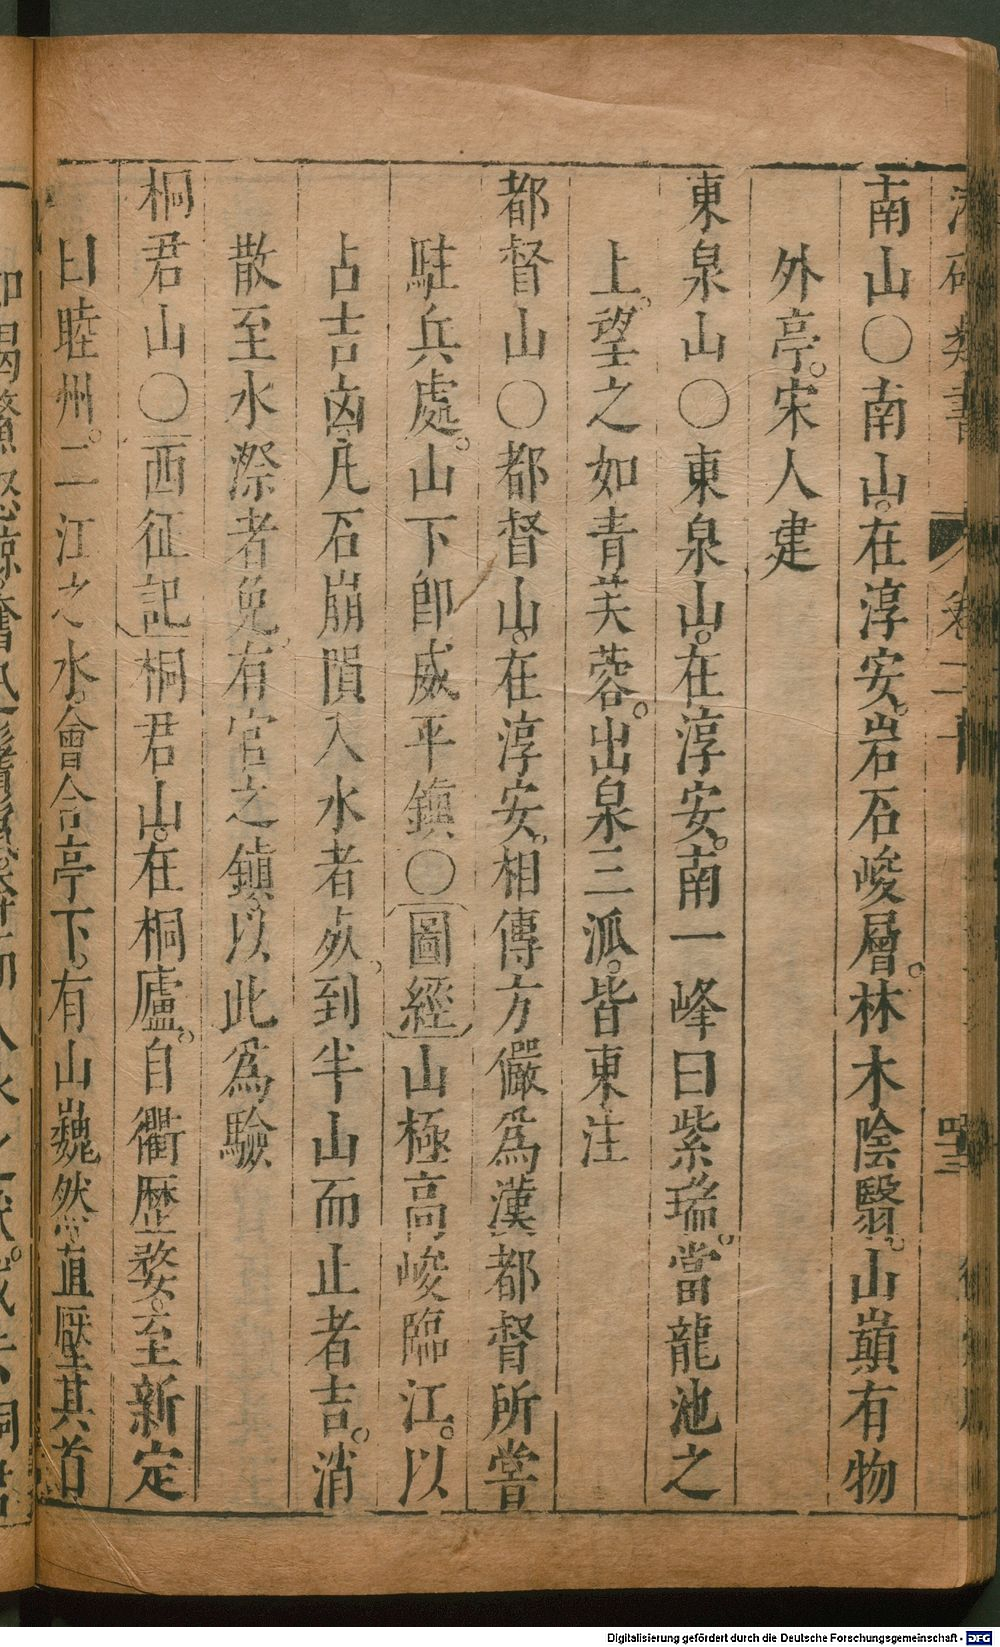 類書 卷二十
南山〇南山。在淳安。岩石峻層。林木陰翳。山巔有物
外亭。宋人建
東泉山〇東泉山。在淳安。南一峰曰紫瑞。當龍池之
上。望之如青芙蓉。出泉三派。皆東注
都督山〇都督山。在淳安。相傳方儼為漢都督所嘗
駐兵處。山下卽威平鎮〇圖經山極高峻臨江。以
占吉凶凡石崩隕入水者㱔。到半山而止者吉。消
散至水漈者免。有官之鎮以此為驗
桐君山〇西征記桐君山。在桐廬。自衢歷婺。至新定
曰睦州。二江之水。會合亭下。有山巍然直壓其首
Digitalisierung gefördert durch die Deutsche Forschungsgemeinschaft - DFG